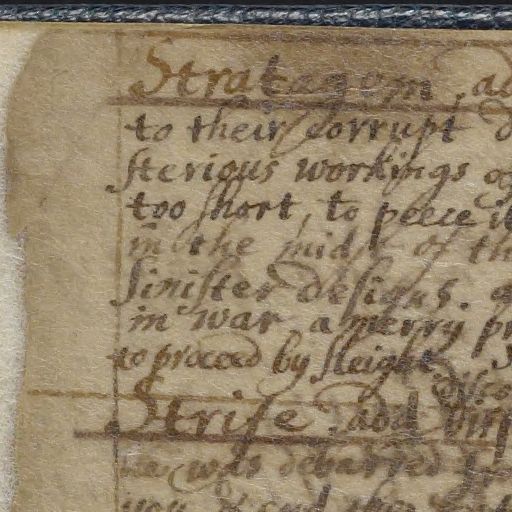 Stratagem, ad
to their corrupt d
sterious workings of
too short, to peece it
in the midst of th
sinister designs. 
in war a merry pr
to proceed by sleight
Strife add
was debarred
you &